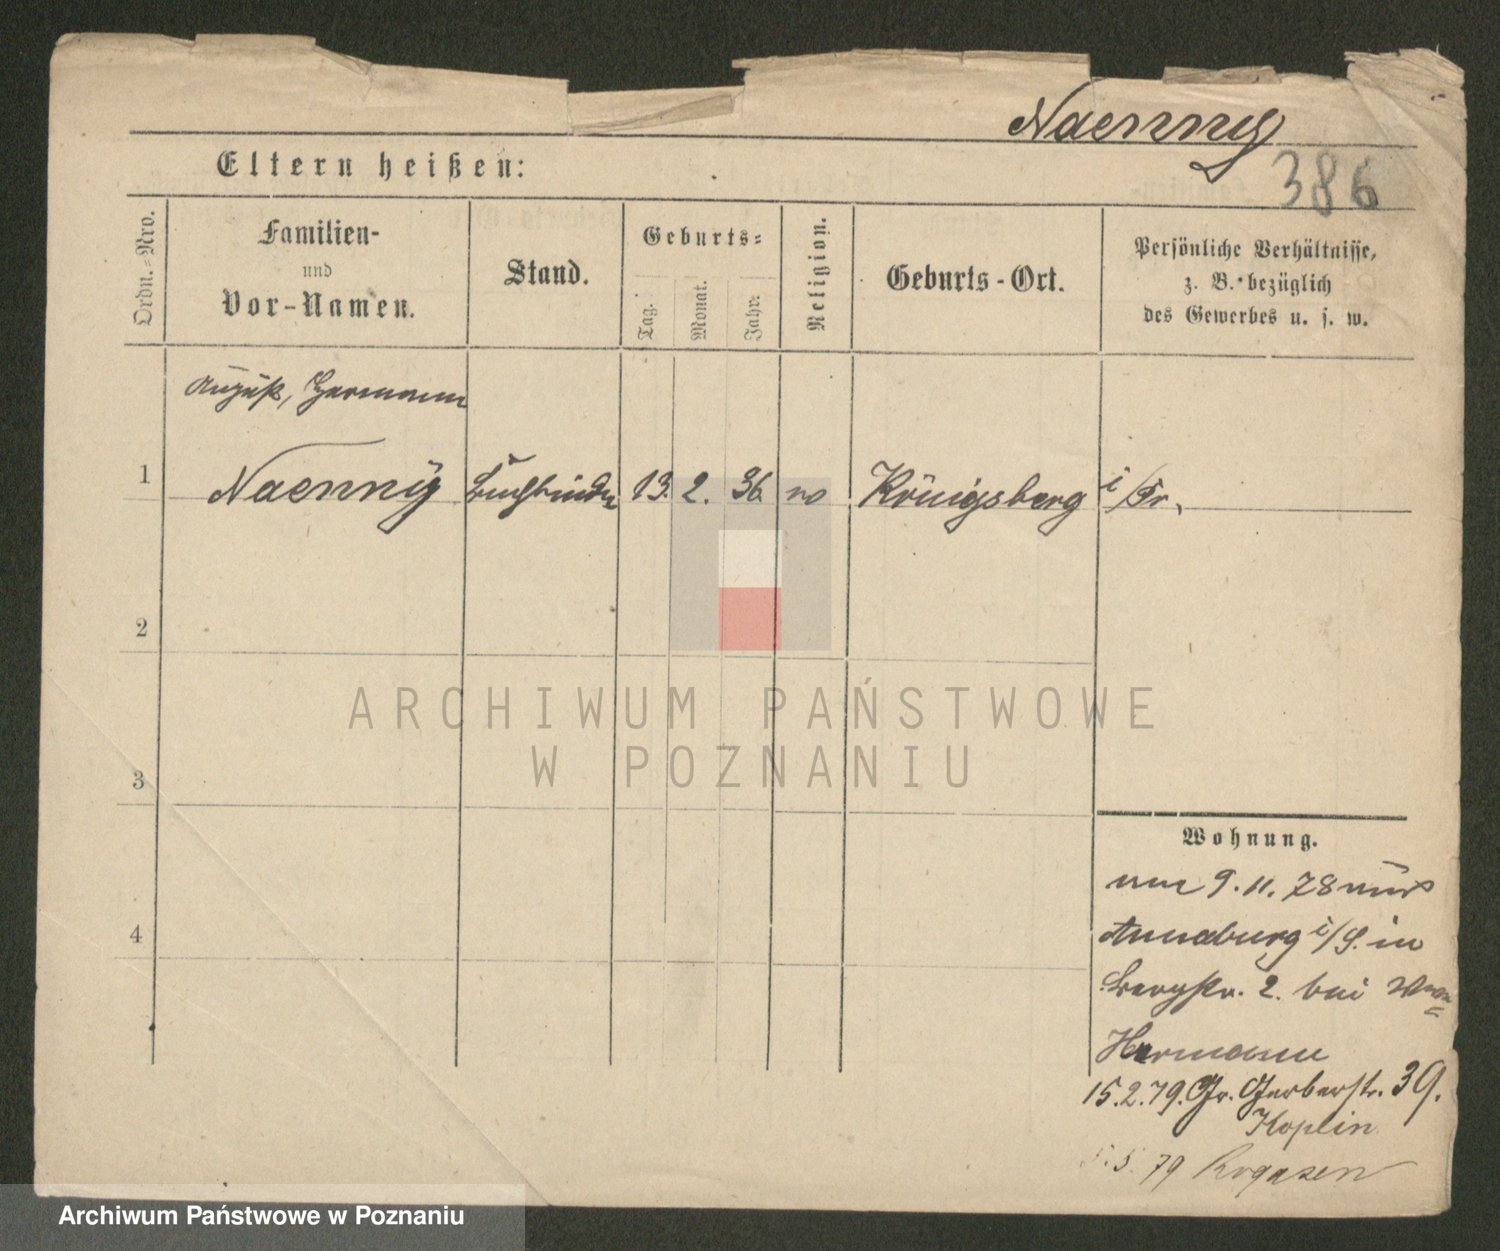 Naenny
386
Eltern heißen:
Ordn.-Nro.
Familien-
und
Vor-Namen.
Stand.
Geburts-
Tag.
Monat.
Jahr.
Religion.
Geburts-Ort.
Persönliche Verhältnisse,
z. B. bezüglich
des Gewerbes u. s. w.
August, Hermann
1 Naenny Buchbinder 13. 2. 36. Königsberg i/Pr.
2
3
4
Wohnung.
9. 11. 78 aus
Annaburg i/S. in
Bergstr. 2. bei Wwe
Hermann
15.2.79. Gr. Gerberstr. 39.
Koplin
5. 79 Rogasen
ARCHIWUM PAŃSTWOWE
W POZNANIU
Archiwum Państwowe w Poznaniu